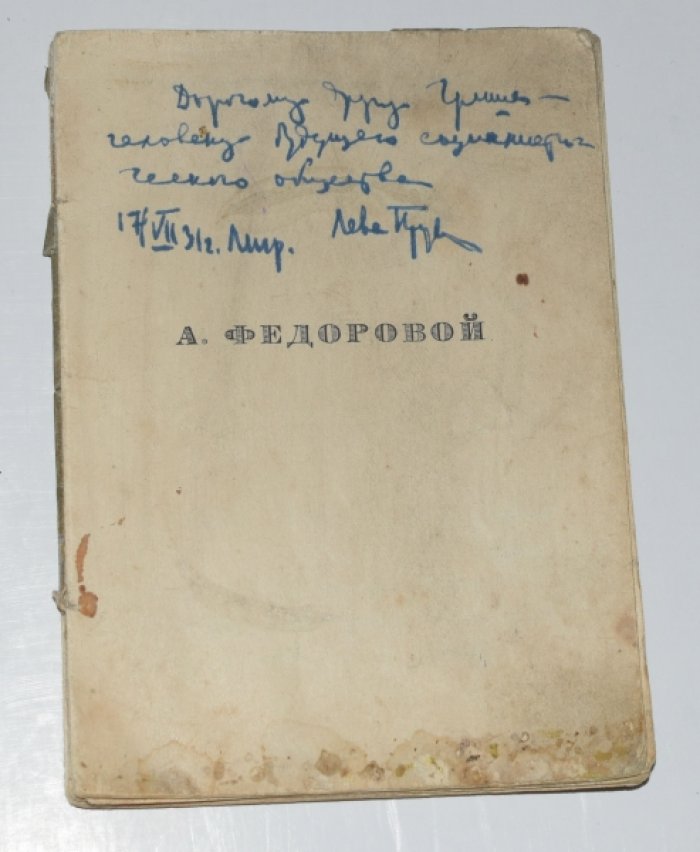 Дорогому другу Грише —
человеку будущего социалисти-
ческого общества
17/VII 31г. Лева
А. ФЕДОРОВОЙ